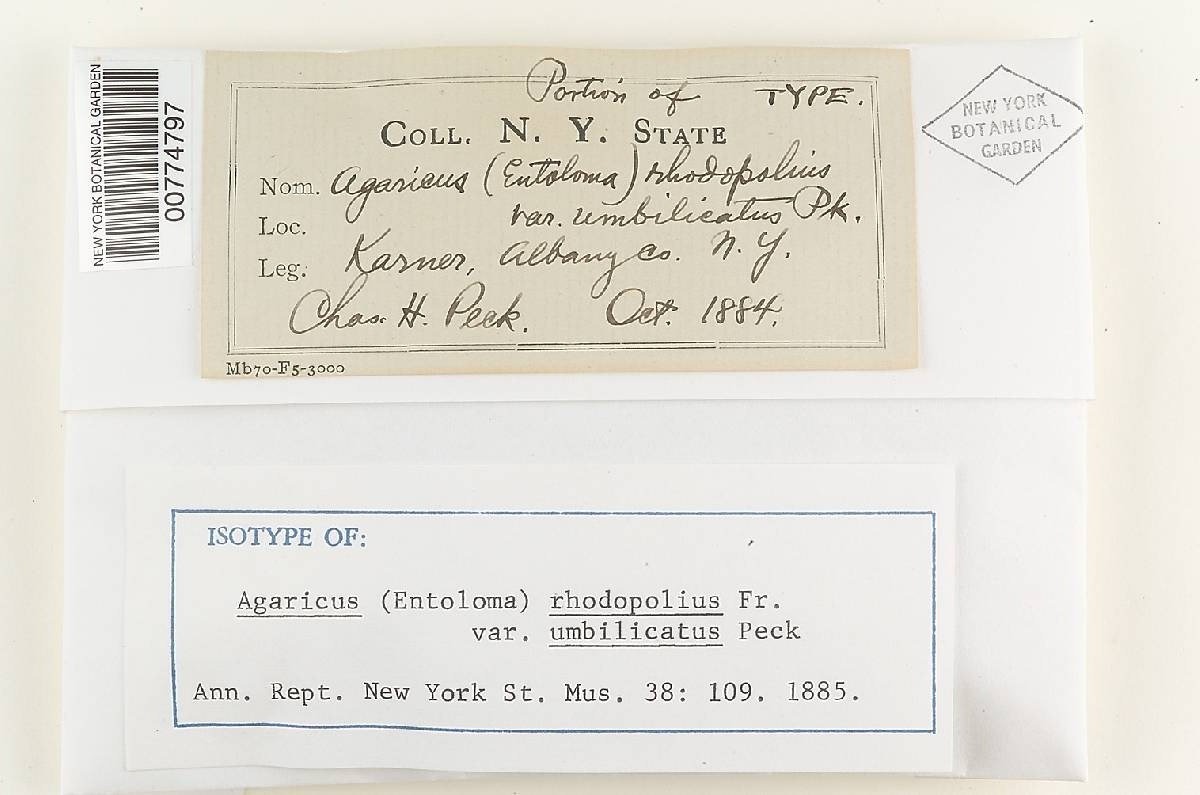 NEW YORK BOTANICAL GARDEN
00774797
Portion of TYPE.
COLL. N. Y. STATE
Nom. Agaricus (Entoloma) rhodopolius
Loc. var. umbilicatus Pk.
Leg. Karner, Albany Co. N. Y.
Chas. H. Peck. Oct. 1884.
Mb70-F5-3000
NEW YORK
BOTANICAL
GARDEN
ISOTYPE OF:
Agaricus (Entoloma) rhodopolius Fr.
var. umbilicatus Peck
Ann. Rept. New York St. Mus. 38: 109. 1885.